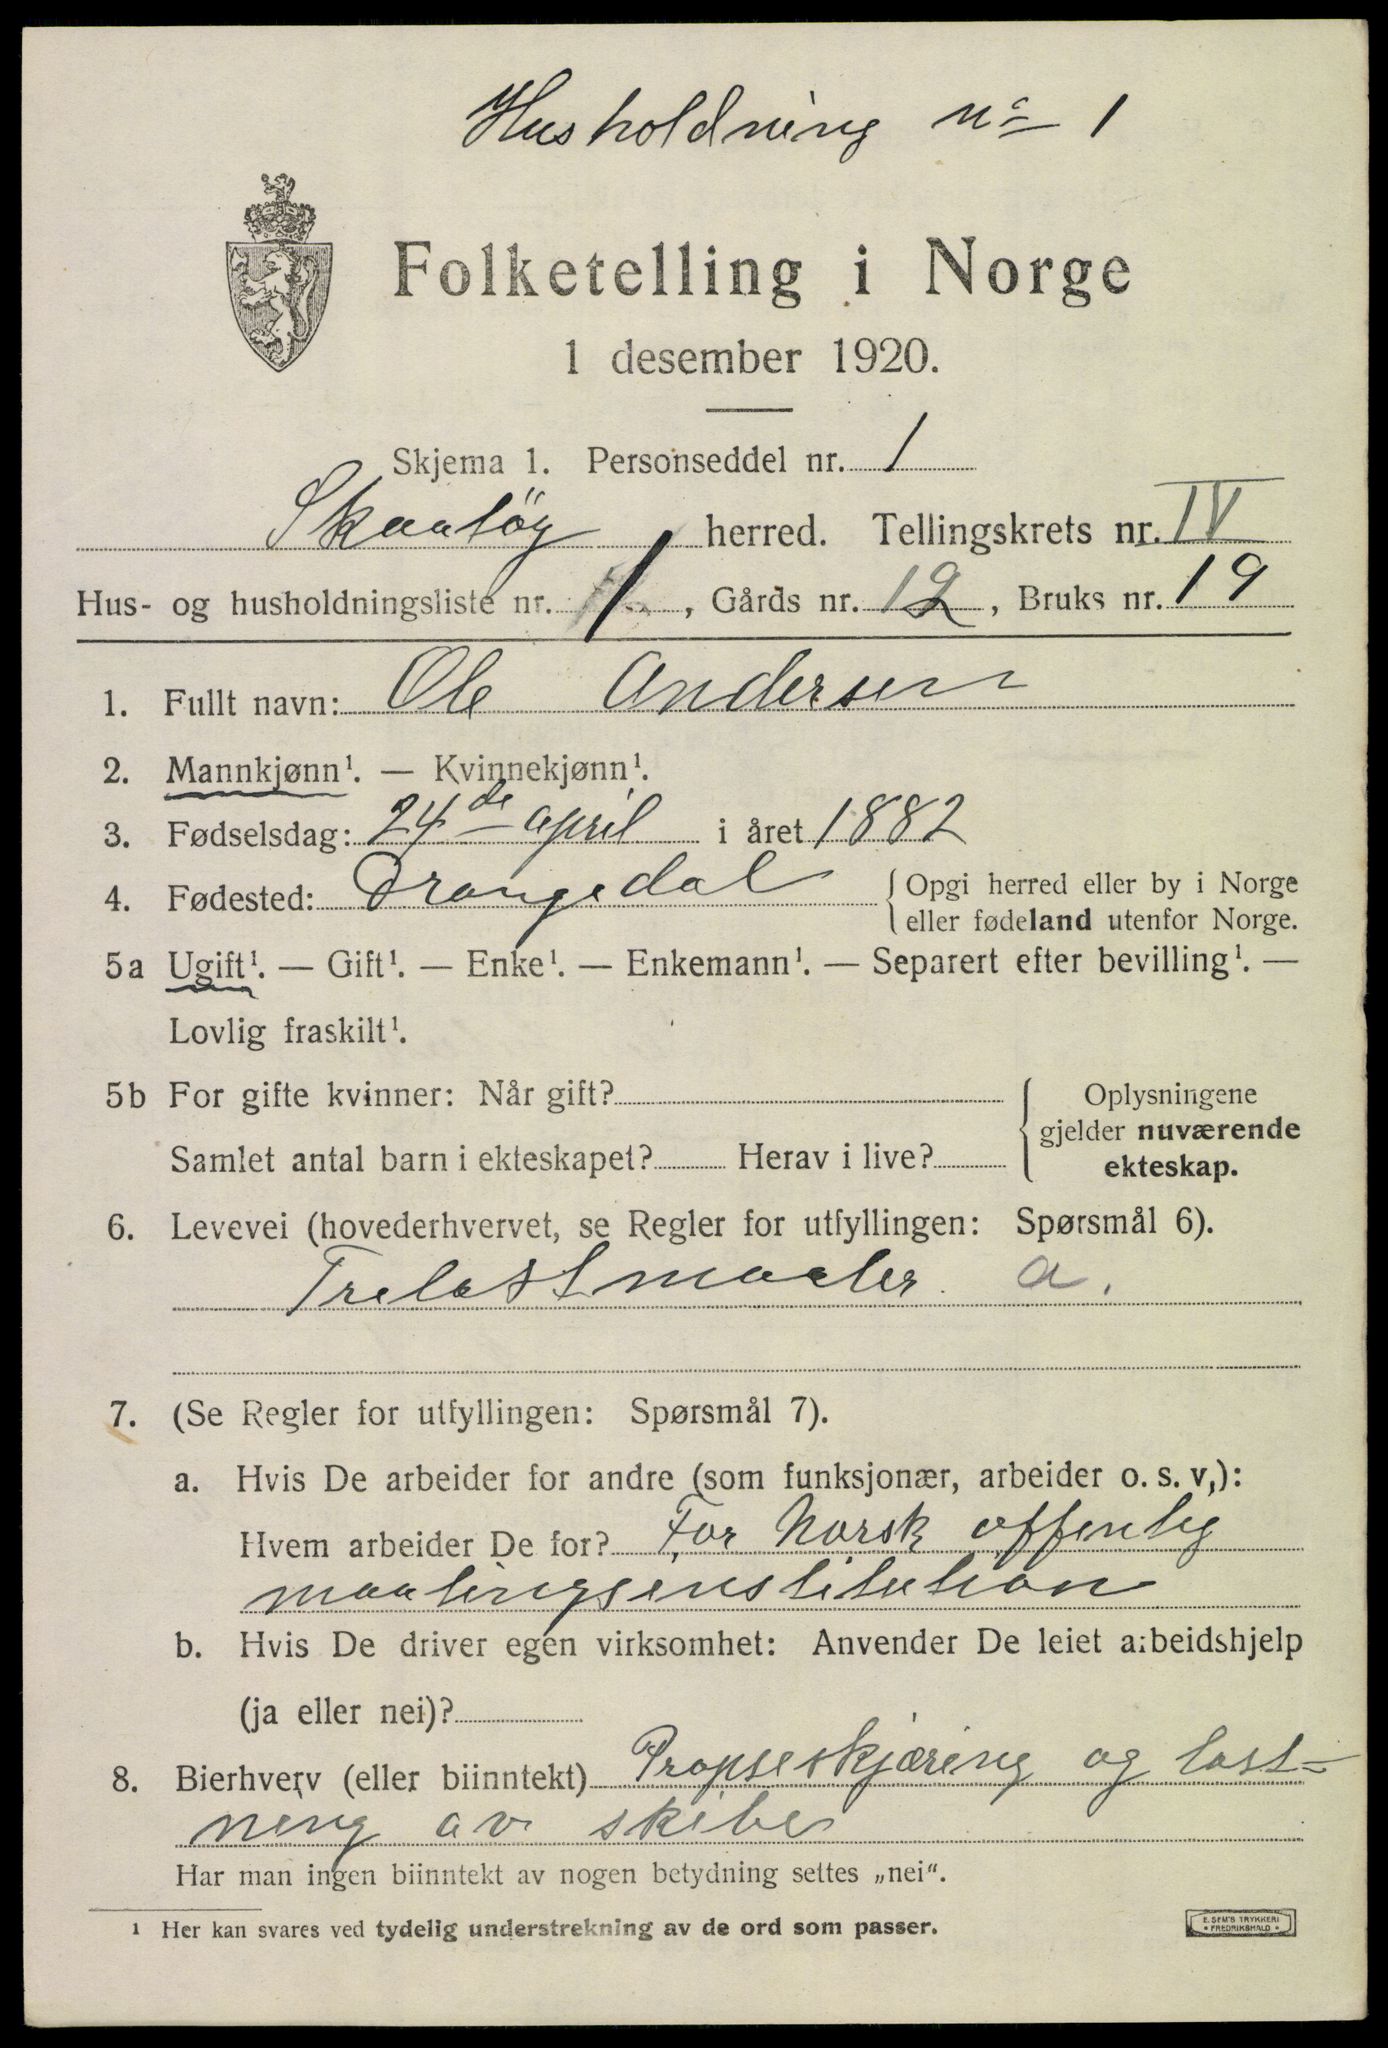 Husholdning no 1
Folketelling i Norge
1 desember 1920.
Skjema 1. Personseddel nr. 1
Skaatöy herred. Tellingskrets nr. IV
Hus- og husholdningsliste nr. 1, Gårds nr. 12, Bruks nr. 19
1. Fullt navn: Ole Andersen
2. Mannkjønn¹. — Kvinnekjønn¹.
3. Fødselsdag: 24de april i året 1882
4. Fødested: Drangedal { Opgi herred eller by i Norge
eller fødeland utenfor Norge.
5a Ugift¹. — Gift¹. — Enke¹. — Enkemann¹. — Separert efter bevilling¹. —
Lovlig fraskilt¹.
5b For gifte kvinner: Når gift? { Oplysningene
gjelder nuværende
Samlet antal barn i ekteskapet? Herav i live? ekteskap.
6. Levevei (hovederhvervet, se Regler for utfyllingen: Spørsmål 6).
Trelastmaaler a.
7. (Se Regler for utfyllingen: Spørsmål 7).
a. Hvis De arbeider for andre (som funksjonær, arbeider o. s. v,):
Hvem arbeider De for? For Norsk offenlig
maalingsinstitution
b. Hvis De driver egen virksomhet: Anvender De leiet arbeidshjelp
(ja eller nei)?
8. Bierhverv (eller biinntekt) Propseskjæring og last-
ning av skibe
Har man ingen biinntekt av nogen betydning settes „nei“.
¹ Her kan svares ved tydelig understrekning av de ord som passer.
E. SEM'S TRYKKERI
• FREDRIKSHALD •